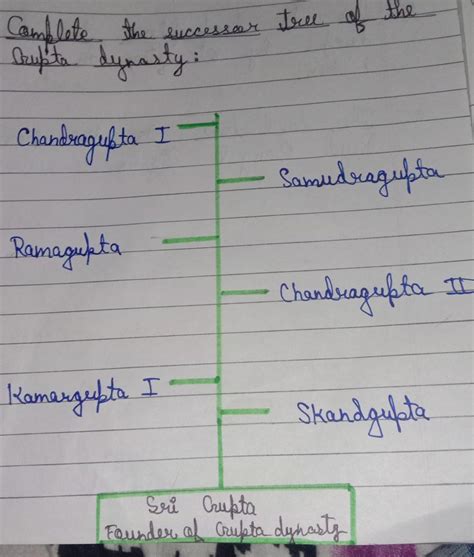 Complete the successor tree of the
Gupta dynasty:
Chandragupta I
Samudragupta
Ramagupta
Chandragupta II
Kamargupta I
Skandgupta
Sri Gupta
Founder of Gupta dynasty